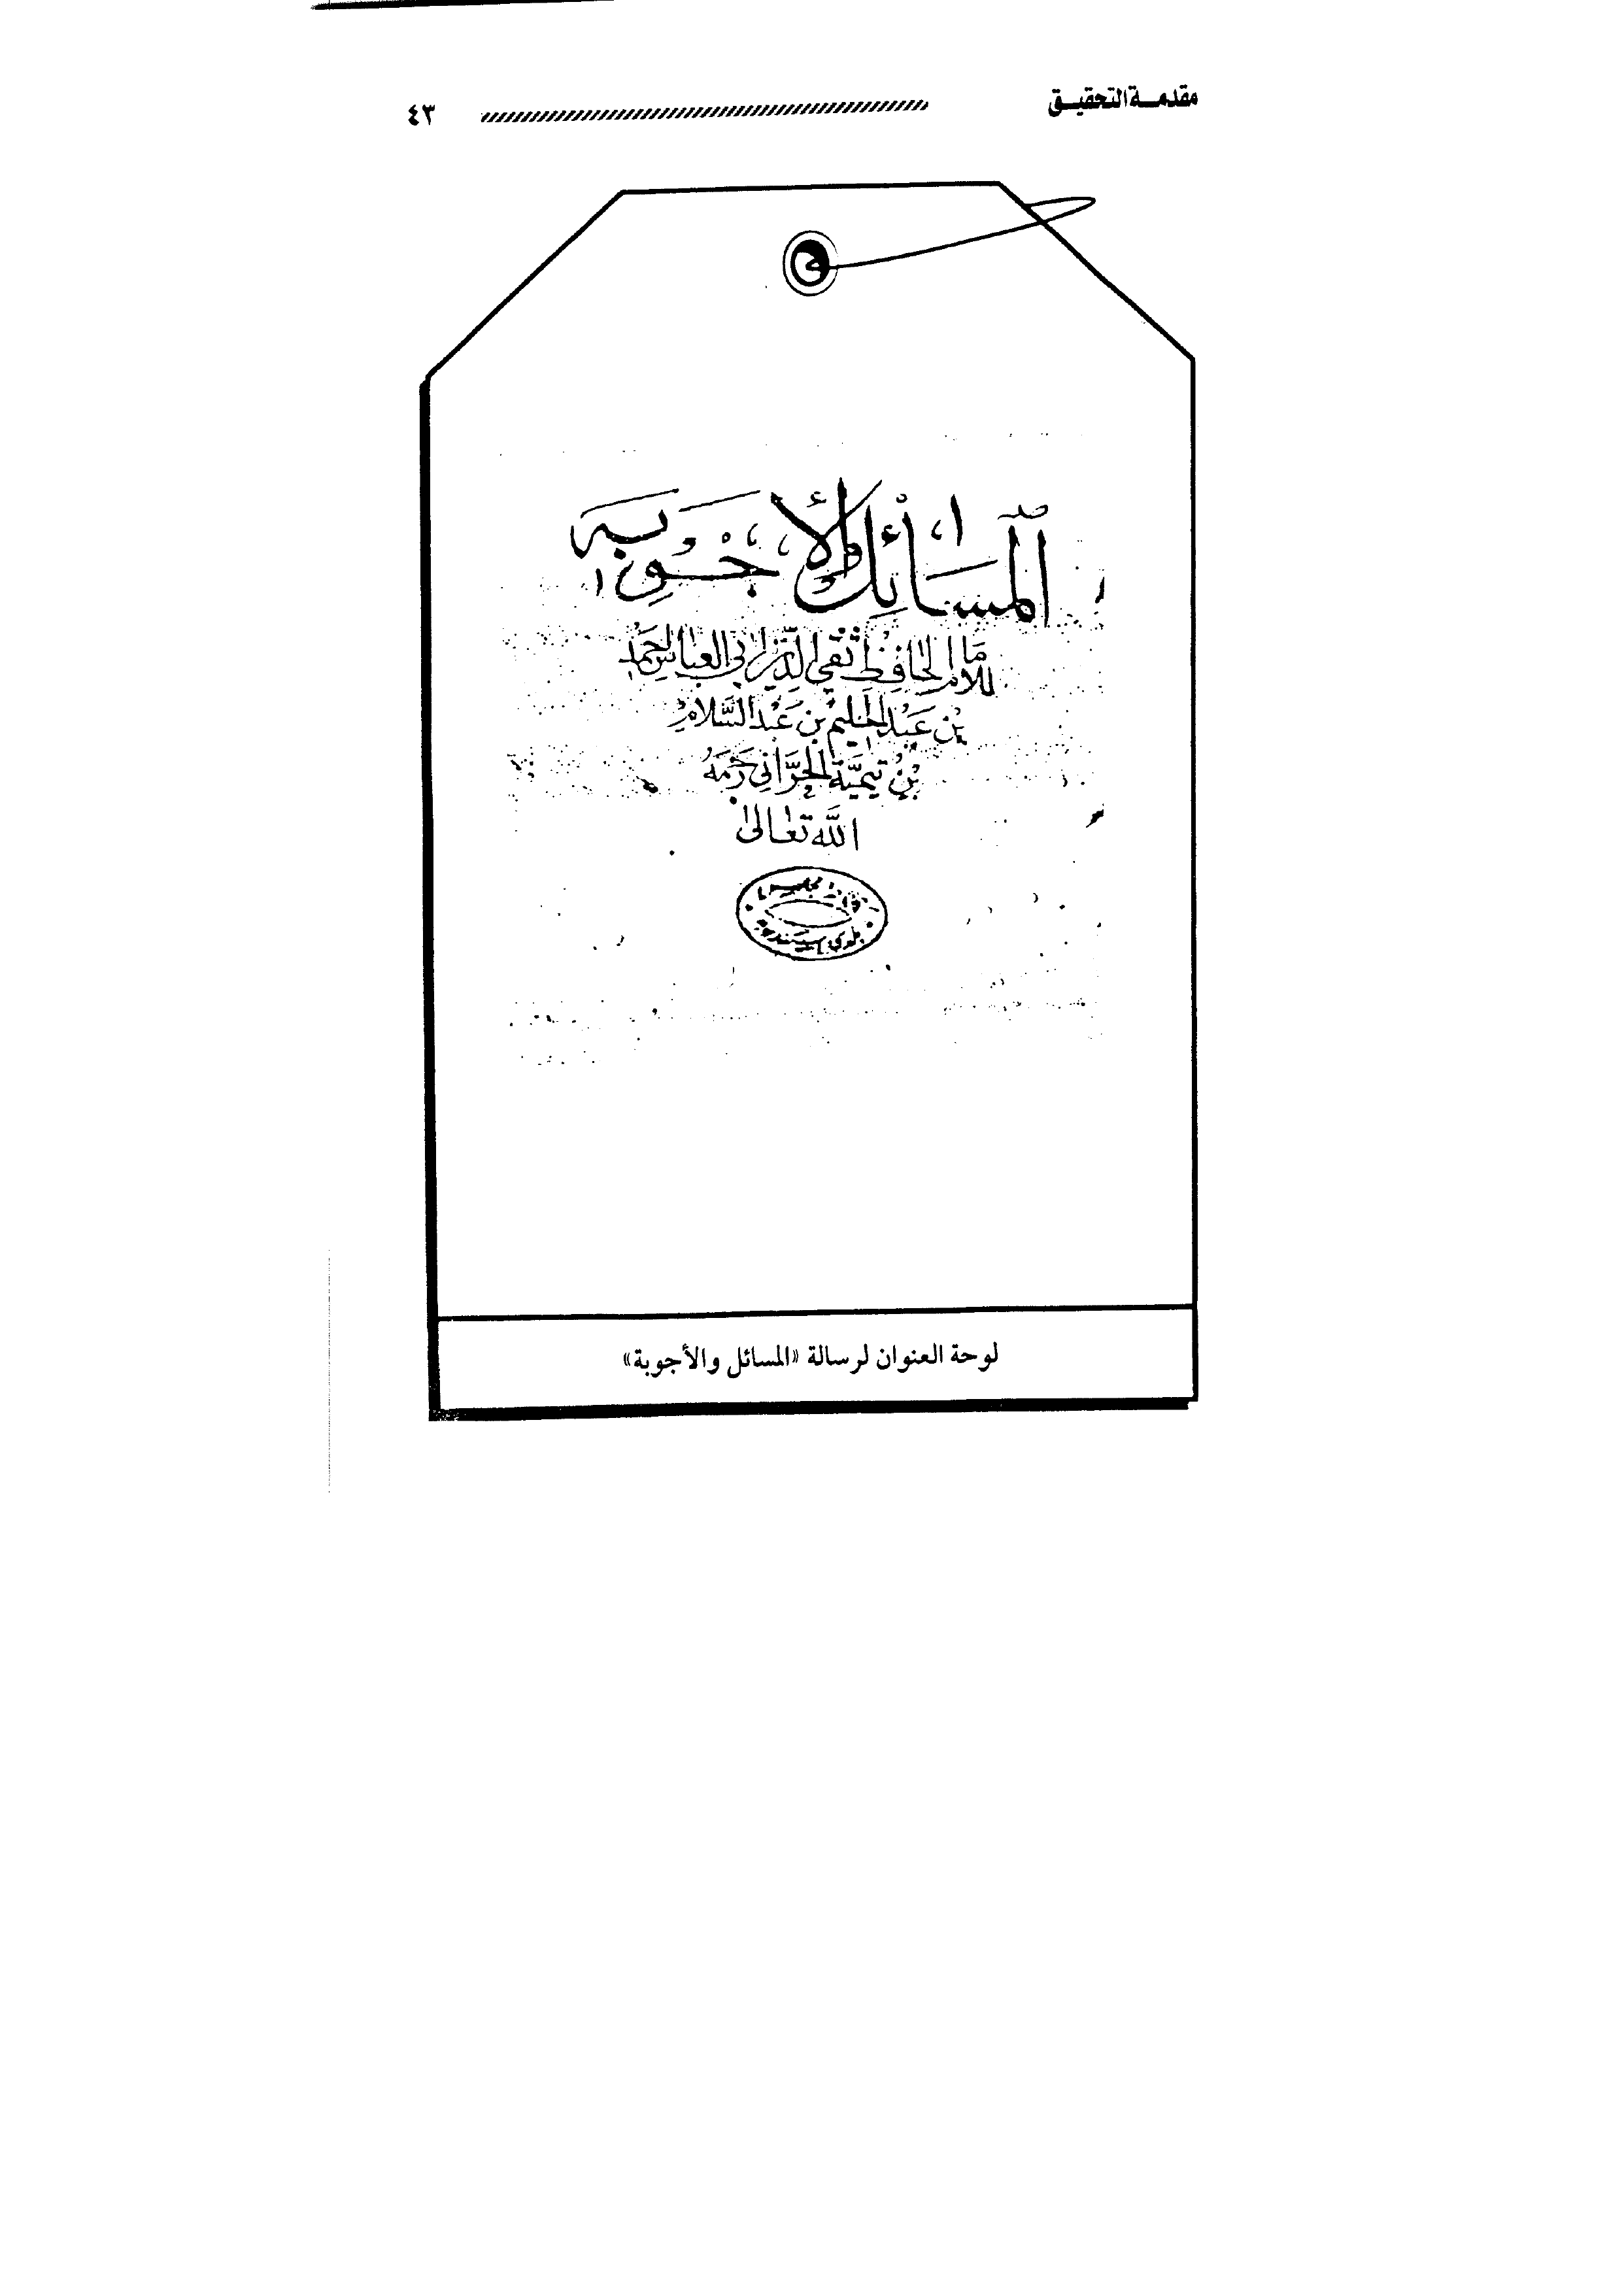 مقدمـة التحقيـق ٤٣
المسائل والأجوبه
للامام الحافظ تقي الدين ابي العباس احمد
بن عبد الحليم بن عبد السلام
بن تيمية الحراني رحمه
الله تعالى
بلدي
لوحة العنوان لرسالة «المسائل والأجوبة»